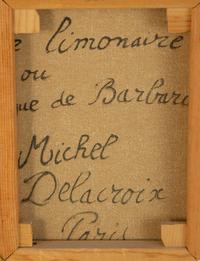 e limonaire
ou
que de Barbari
Michel
Delacroix
Paris